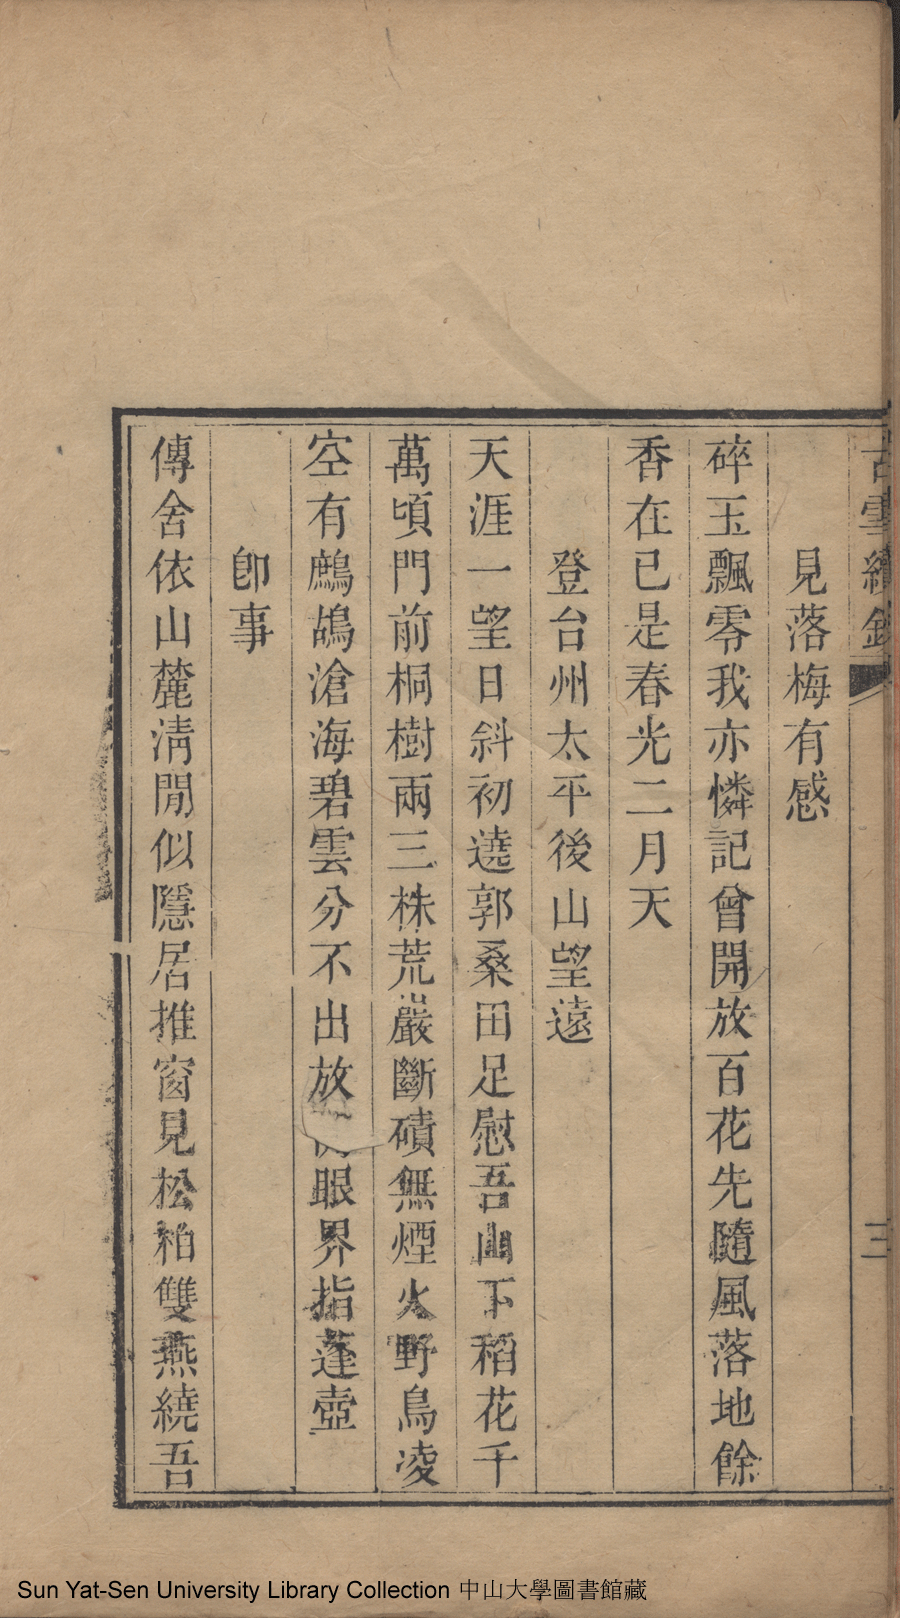 古雪續鈔
三
見落梅有感
碎玉飄零我亦憐記曾開放百花先隨風落地餘
香在已是春光二月天
登台州太平後山望遠
天涯一望日斜初遶郭桑田足慰吾山下稻花千
萬頃門前桐樹兩三株荒巖斷磧無煙火野鳥凌
空有鷓鴣滄海碧雲分不出放眼界指蓬壺
即事
傳舍依山麓淸閒似隱居推窗見松柏雙燕繞吾
Sun Yat-Sen University Library Collection 中山大學圖書館藏